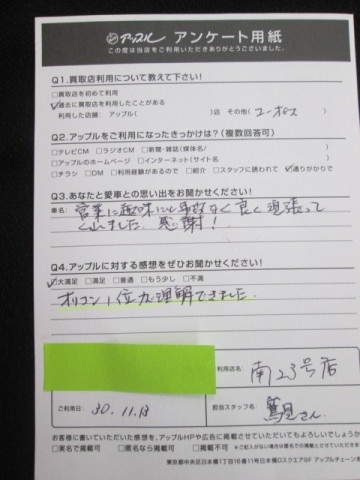 アップル アンケート用紙
この度は当店をご利用いただきありがとうございました。
Q1.買取店利用について教えて下さい!
□買取店を初めて利用
□過去に買取店を利用したことがある
利用した店舗: アップル( )店 その他( ユーポス
Q2.アップルをご利用になったきっかけは?(複数回答可)
□テレビCM □ラジオCM □新聞・雑誌(媒体名/ )
□アップルのホームページ □インターネット(サイト名
□チラシ □DM □利用経験があるので □紹介 □スタッフに誘われて □通りがかりで
Q3.あなたと愛車との思い出をお聞かせください!
車名: 営業に趣味にと事故なく良く頑張って
くれました。感謝!
Q4.アップルに対する感想をぜひお聞かせください!
□大満足 □満足 □普通 □もう少し □不満
オリコン1位が理解できました。
利用店名: 南23号店
ご利用日: 30.11.18
担当スタッフ名: さん
お客様に書いていただいた感想を、アップルHPや広告に掲載させていただいてもよろしいでしょうか
□実名で掲載可 □匿名なら掲載可 □掲載不可 ※ご記入がない場合は匿名での掲載とさせていただきます
東京都中央区日本橋1丁目16番11号日本橋Dスクエア6F アップルチェーン本